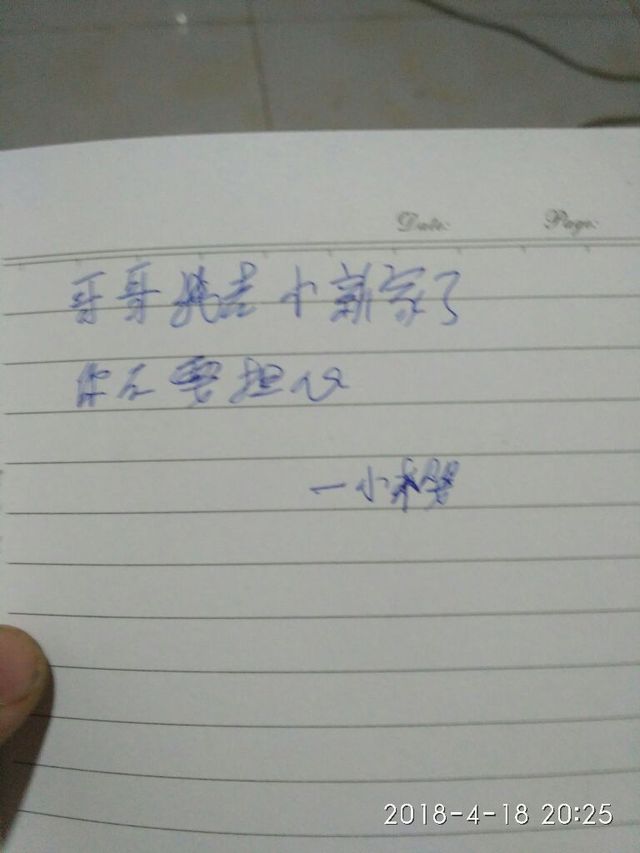 Date: Page:
哥哥我去小新家了
你不要担心
一小
2018-4-18 20:25